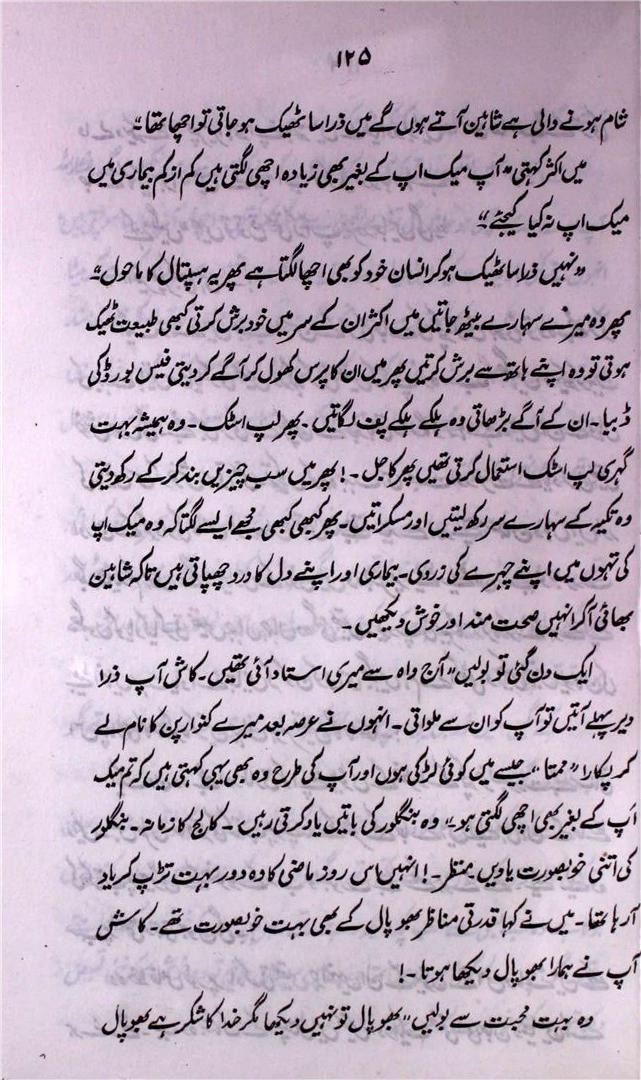 ۱۲۵
شام ہونے والی ہے شاہین آتے ہوں گے میں ذرا سا ٹھیک ہو جاتی تو اچھا تھا"
میں اکثر کہتی "آپ میک اپ کے بغیر بھی زیادہ اچھی لگتی ہیں کم از کم بیماری میں
میک اپ نہ کیا کیجئے"
"نہیں ذرا سا ٹھیک ہو کر انسان خود کو بھی اچھا لگتا ہے پھر یہ ہسپتال کا ماحول"
پھر وہ میرے سہارے بیٹھ جاتیں میں اکثر ان کے سر میں خود برش کرتی کبھی طبیعت ٹھیک
ہوتی تو وہ اپنے ہاتھ سے برش کرتیں پھر میں ان کا پرس کھول کر آگے کر دیتی فیس بورڈ کی
ڈبیا۔ ان کے آگے بڑھاتی وہ ہلکے ہلکے پف لگاتیں۔ پھر لپ اسٹک۔ وہ ہمیشہ بہت
گہری لپ اسٹک استعمال کرتی تھیں پھر کاجل۔! پھر میں سب چیزیں بند کر کے رکھ دیتی
وہ تکیہ کے سہارے سر رکھ لیتیں اور مسکراتیں۔ پھر کبھی کبھی مجھے ایسے لگتا کہ وہ میک اپ
کی تہوں میں اپنے چہرے کی زردی۔ بیماری اور اپنے دل کا درد چھپاتی ہیں تاکہ شاہین
بھائی آ کر انہیں صحت مند اور خوش دیکھیں۔
ایک دن گئی تو بولیں "آج واہ سے میری استاد آئی تھیں۔ کاش آپ ذرا
دیر پہلے آتیں تو آپ کو ان سے ملواتی۔ انہوں نے عرصہ بعد میرے کنوارپن کا نام لے
کر پکارا "ممتا" جیسے میں کوئی لڑکی ہوں اور آپ کی طرح وہ بھی یہی کہتی ہیں کہ تم میک
اپ کے بغیر بھی اچھی لگتی ہو" وہ بنگلور کی باتیں یاد کرتی رہیں۔ کالج کا زمانہ۔ بنگلور
کی اتنی خوبصورت یادیں۔ منظر۔! انہیں اس روز ماضی کا وہ دور بہت تڑپ کر یاد
آ رہا تھا۔ میں نے کہا قدرتی مناظر بھوپال کے بھی بہت خوبصورت تھے۔ کاش
آپ نے ہمارا بھوپال دیکھا ہوتا۔!
وہ بہت محبت سے بولیں "بھوپال تو نہیں دیکھا مگر خدا کا شکر ہے بھوپال